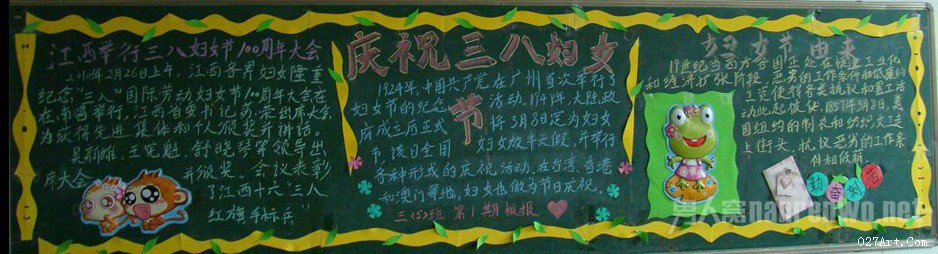 江西举行三八妇女节100周年大会
2010年2月26日上午,江西各界妇女隆重
纪念"三八"国际劳动妇女节100周年大会在
在南昌举行,江西省委书记苏荣出席大会
为获得先进集体和个人颁奖并讲话。
吴新雄、王宪魁、舒晓琴等领导出
席大会
并颁奖。会议表彰
了江西十六"三八
红旗手标兵"
庆祝三八妇女
节
1924年,中国共产党在广州首次举行了
妇女节的纪念 活动,1949年,大陆政
府成立后正式 将3月8日定为妇女
节,该日全国 妇女放半天假,并举行
各种形式的庆祝活动,在台湾、香港
和澳门等地,妇女也做为节日庆祝。
三(5)班 第1期板报
妇女节由来
19世纪当西方各国正处在快速工业化
和经济扩张阶段,恶劣的工作条件和低廉的
工资使得各类抗议和罢工活
动此起彼伏,1857年3月8日,美
国纽约的制衣和纺织女工走
上街头,抗议恶劣的工作条
件和低薪。
027Art.Com